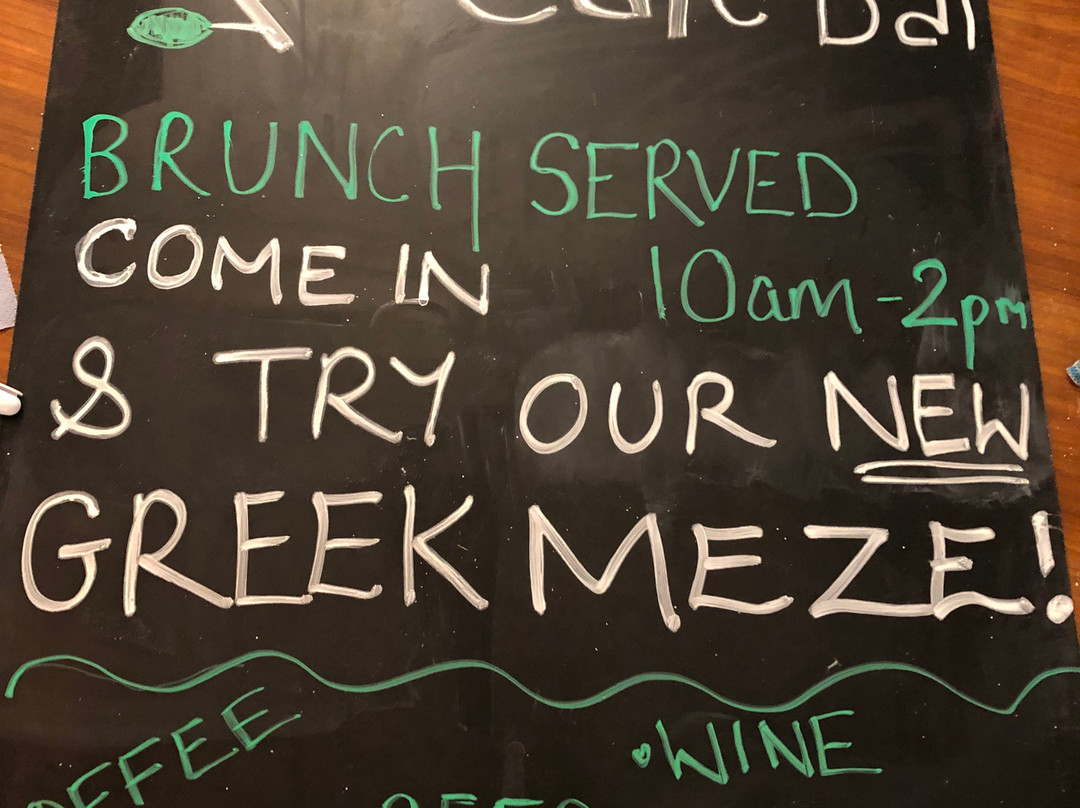 Cafe Bar
BRUNCH SERVED
10am - 2pm
COME IN
& TRY OUR NEW
GREEK MEZE!
COFFEE
WINE
BEER